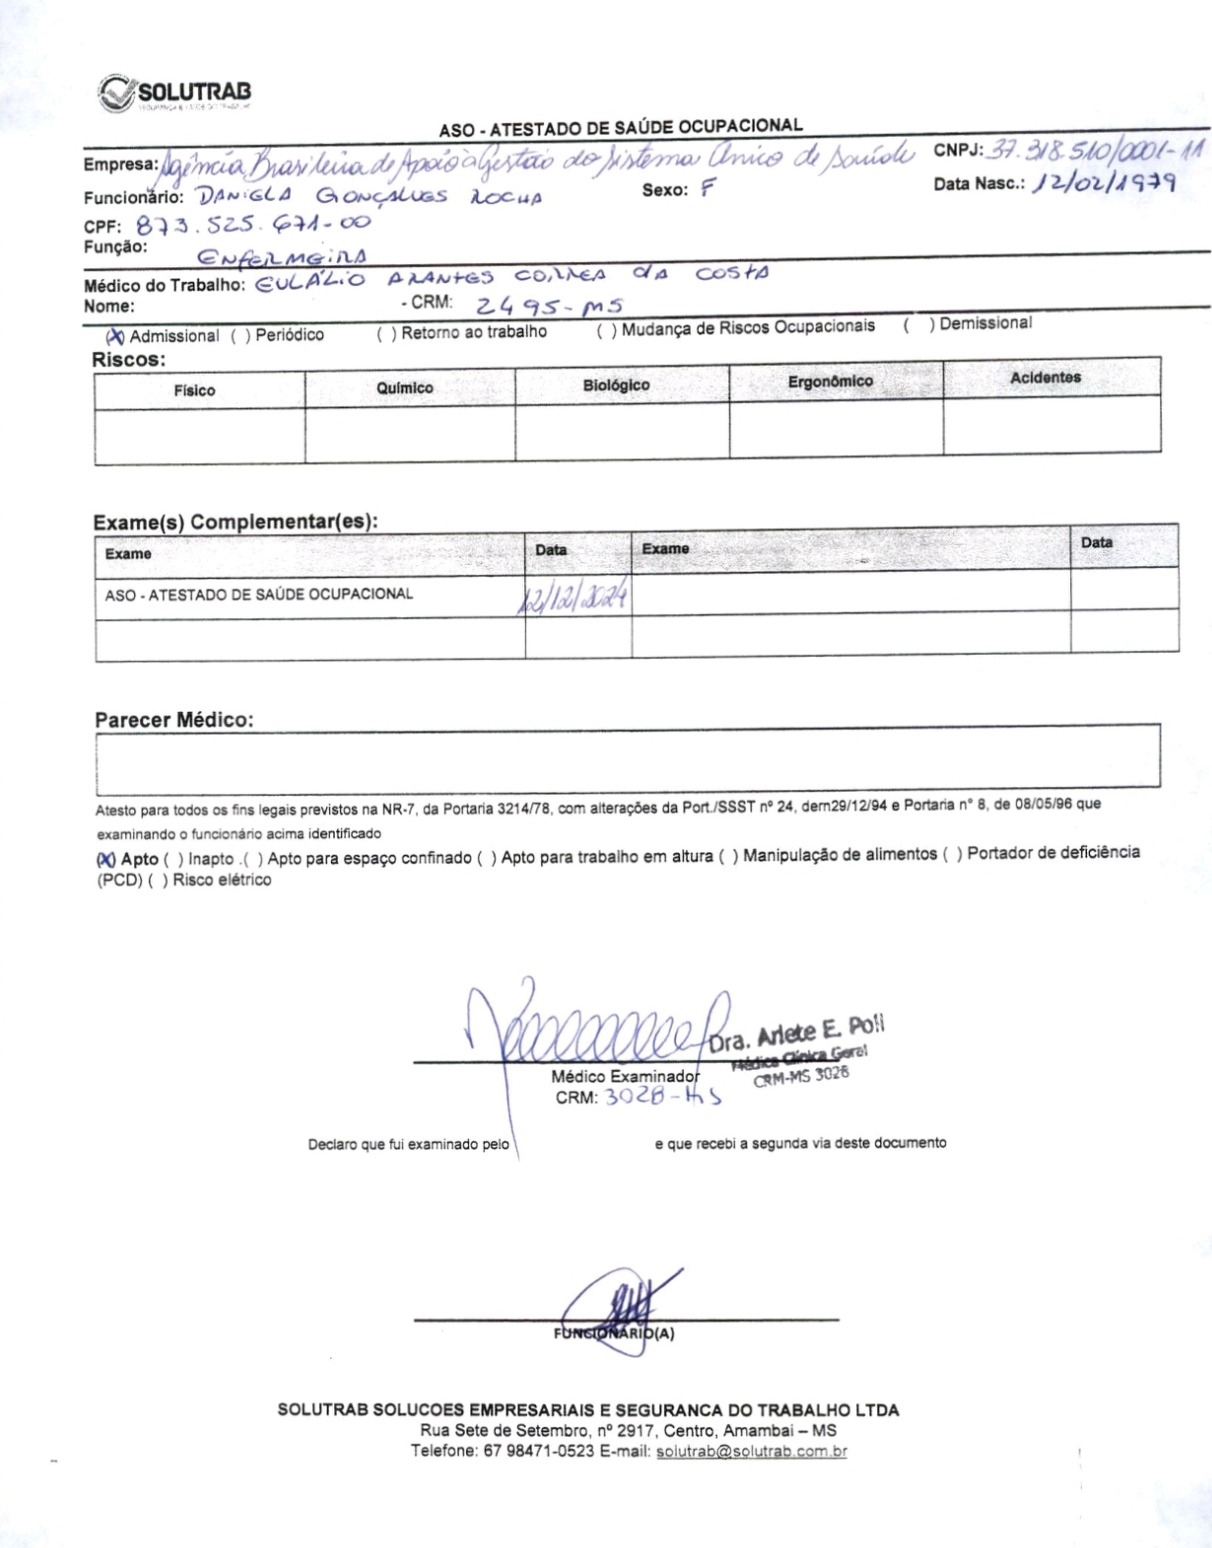 SOLUTRAB
ASO - ATESTADO DE SAÚDE OCUPACIONAL
Empresa: Agência Brasileira de Apoio à Gestão do Sistema Único de Saúde CNPJ: 37.318.510/0001-11
Funcionário: DANIELA GONÇALVES ROCHA Sexo: F Data Nasc.: 12/02/1979
CPF: 873.525.671-00
Função: ENFERMEIRA
Médico do Trabalho: EULÁLIO ARANTES CORREA DA COSTA
Nome: - CRM: 2495-MS
(X) Admissional ( ) Periódico ( ) Retorno ao trabalho ( ) Mudança de Riscos Ocupacionais ( ) Demissional
Riscos:
Físico Químico Biológico Ergonômico Acidentes
Exame(s) Complementar(es):
Exame Data Exame Data
ASO - ATESTADO DE SAÚDE OCUPACIONAL 12/12/2024
Parecer Médico:
Atesto para todos os fins legais previstos na NR-7, da Portaria 3214/78, com alterações da Port./SSST nº 24, dem29/12/94 e Portaria n° 8, de 08/05/96 que
examinando o funcionário acima identificado
(X) Apto ( ) Inapto .( ) Apto para espaço confinado ( ) Apto para trabalho em altura ( ) Manipulação de alimentos ( ) Portador de deficiência
(PCD) ( ) Risco elétrico
Dra. Arlete E. Poli
Médica Clínica Geral
CRM-MS 3028
Médico Examinador
CRM: 3028-MS
Declaro que fui examinado pelo e que recebi a segunda via deste documento
FUNCIONÁRIO(A)
SOLUTRAB SOLUCOES EMPRESARIAIS E SEGURANCA DO TRABALHO LTDA
Rua Sete de Setembro, nº 2917, Centro, Amambai – MS
Telefone: 67 98471-0523 E-mail: solutrab@solutrab.com.br